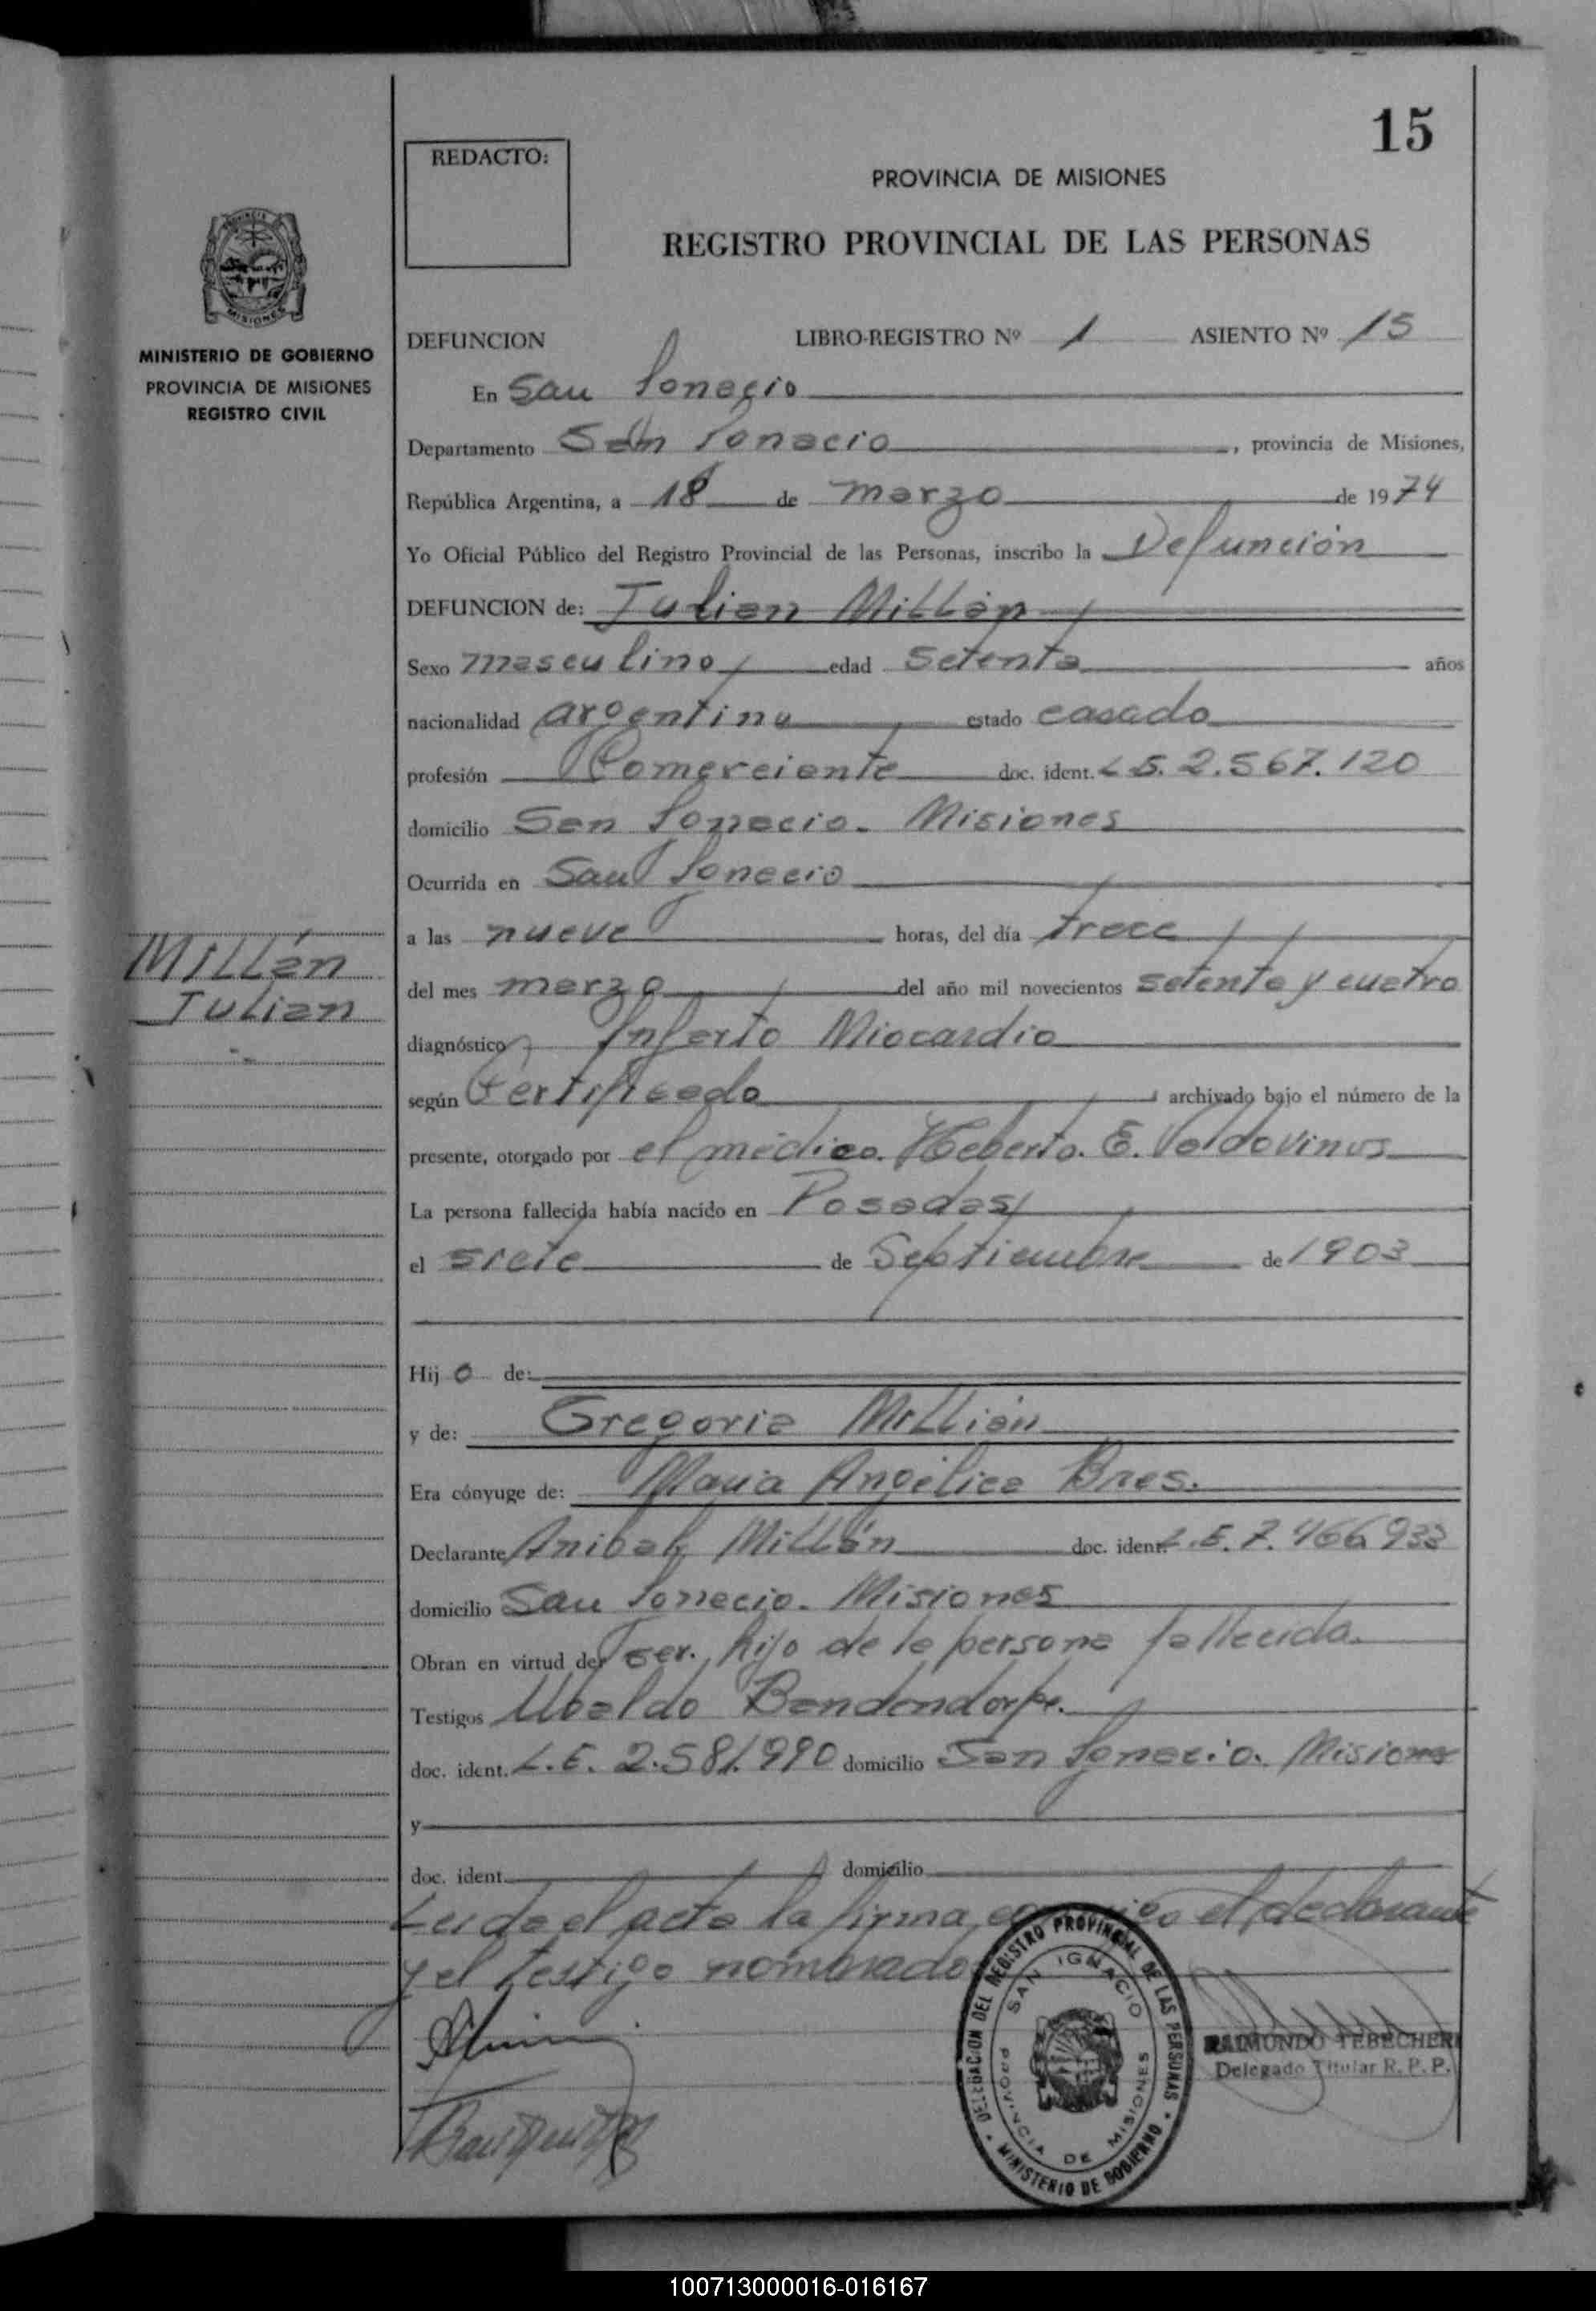 15
REDACTO:
PROVINCIA DE MISIONES
REGISTRO PROVINCIAL DE LAS PERSONAS
MISIONES
MINISTERIO DE GOBIERNO
PROVINCIA DE MISIONES
REGISTRO CIVIL
DEFUNCION LIBRO-REGISTRO Nº 1 ASIENTO Nº 15
En San Ignacio
Departamento San Ignacio, provincia de Misiones,
República Argentina, a 18 de marzo de 1974
Yo Oficial Público del Registro Provincial de las Personas, inscribo la Defunción
DEFUNCION de: Julian Millán
Sexo masculino edad setenta años
nacionalidad argentina estado casado
profesión Comerciante doc. ident. 2.567.120
domicilio San Ignacio. Misiones
Ocurrida en San Ignacio
a las nueve horas, del día trece
del mes marzo del año mil novecientos setenta y cuatro
Millán
Julian
diagnóstico Infarto Miocardio
según Certificado, archivado bajo el número de la
presente, otorgado por el médico. Heberto. E. Valdovinos
La persona fallecida había nacido en Posadas
el siete de Septiembre de 1903
Hijo de:
y de: Gregoria Millián
Era cónyuge de: Maria Angélica Bres.
Declarante Anibal Millán doc. ident. L.E. 7.466.933
domicilio San Ignacio. Misiones
Obran en virtud de ser. hijo de la persona fallecida.
Testigos Ubaldo
doc. ident. L.E. 2.581.990 domicilio San Ignacio. Misiones
y
doc. ident. domicilio
Leida el acta la firma, conmigo el declarante
y el testigo nombrado
DELEGACION DEL REGISTRO PROVINCIAL DE LAS PERSONAS
SAN IGNACIO
PROVINCIA DE MISIONES
MINISTERIO DE GOBIERNO
RAIMUNDO TEBECHERI
Delegado Titular R. P. P.
100713000016-016167